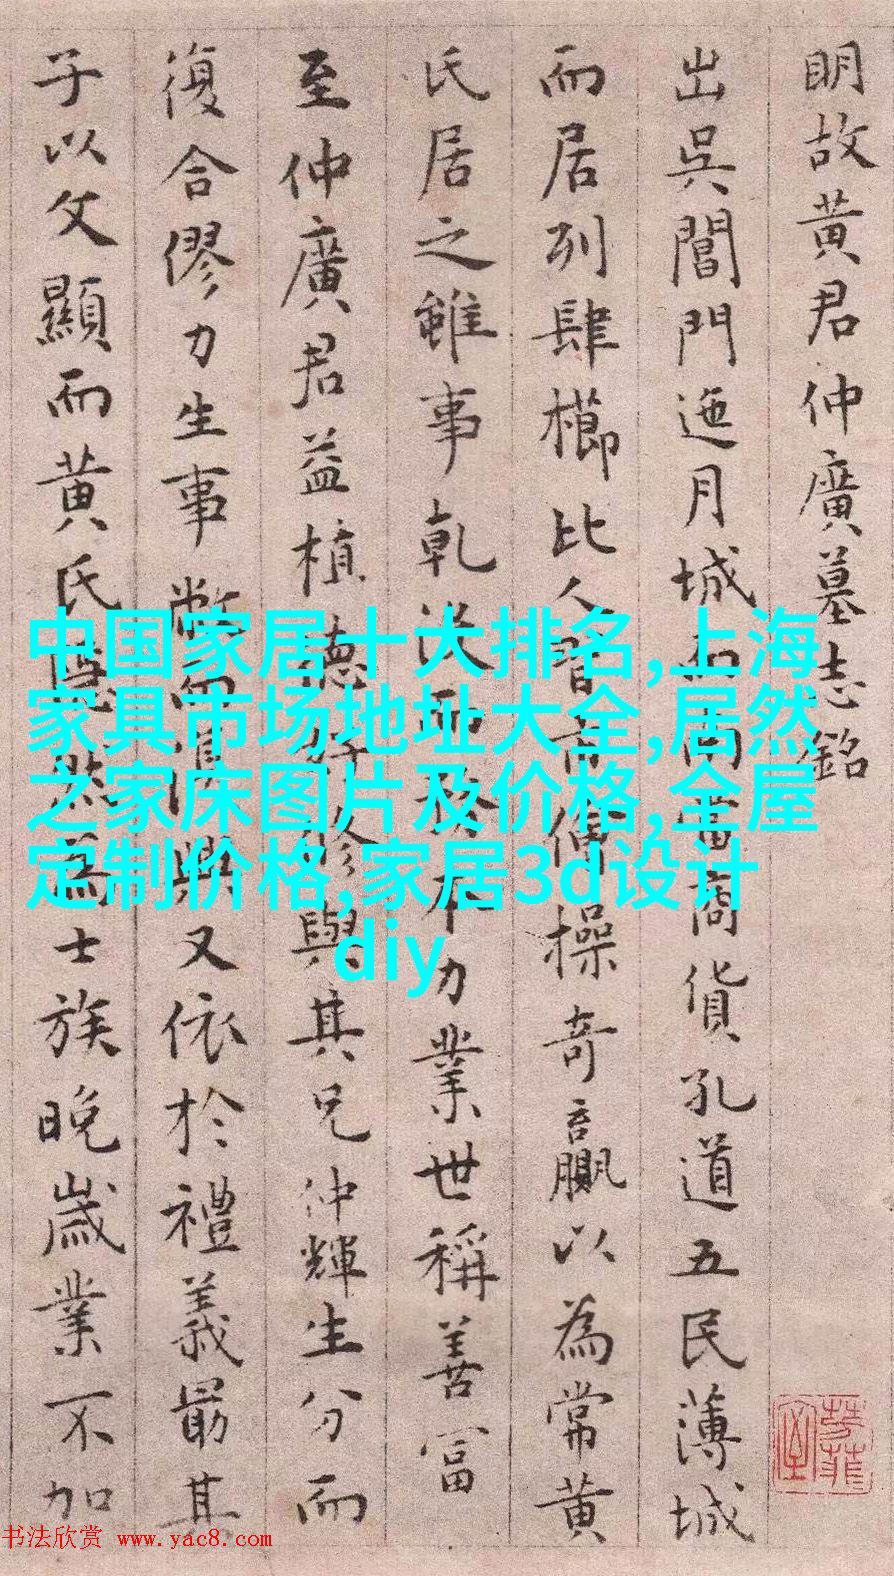 明故黄君仲廣墓志銘
出吳閶門迤月城而富商貨孔道五民薄城
而居列肆櫛比人習市儈操奇贏以為常黄
氏居之雖事乾没而本力業世稱善富
至仲廣君益植德好修與其兄仲輝生分而
復合僇力生事敝而興又依於禮義最其
子以文顯而黄氏然為士族晚歲業不加
中国家居十大排名,上海
家具市场地址大全,居然
之家床图片及价格,全屋
定制价格,家居3d设计
diy
书法欣赏 www.yac8.com